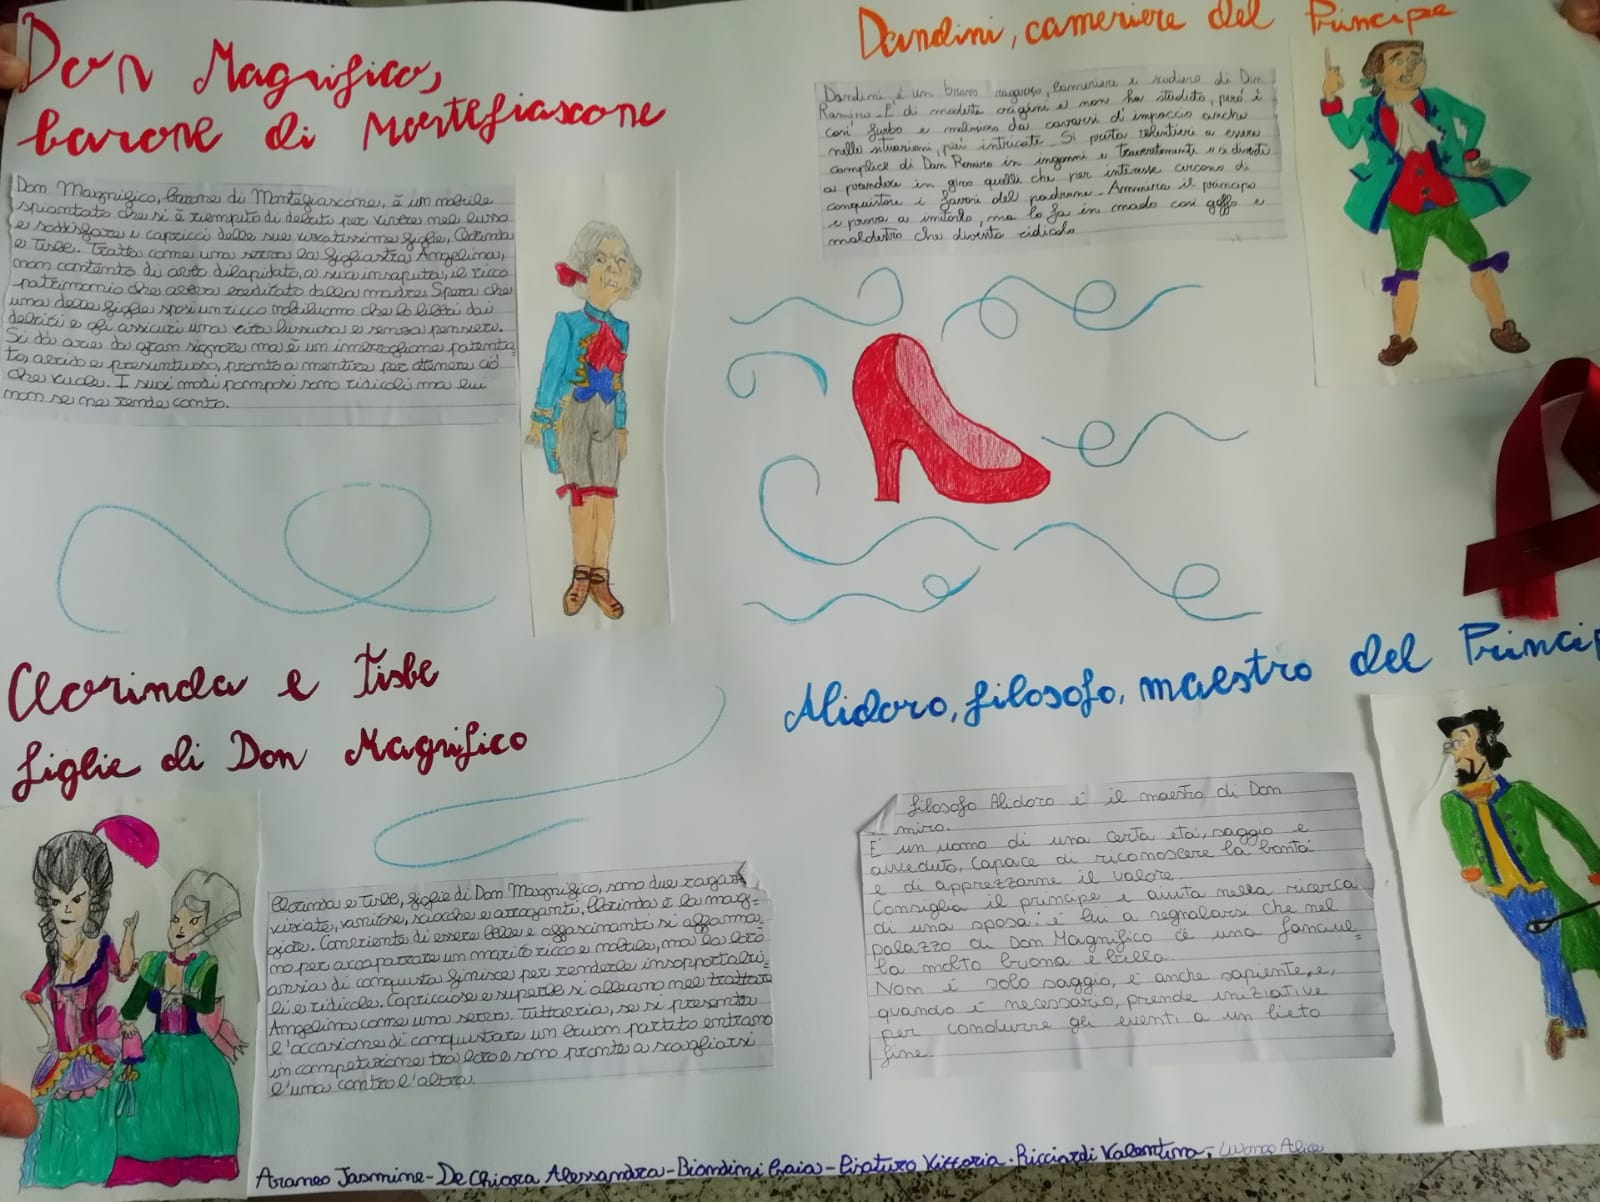 Don Magnifico,
barone di Montefiascone
Don Magnifico, barone di Montefiascone, è un nobile
spiantato che si è riempito di debiti per vivere nel lusso
e soddisfare i capricci delle sue viziatissime figlie, Clorinda
e Tisbe. Tratta come una serva la figliastra Angelina,
non contento di aver dilapidato, a sua insaputa, il ricco
patrimonio che aveva ereditato dalla madre. Spera che
una delle figlie sposi un ricco nobiluomo che lo liberi dai
debiti e gli assicuri una vita lussuosa e senza pensieri.
Si dà arie da gran signore ma è un imbroglione patenta-
to, avido e presuntuoso, pronto a mentire per ottenere ciò
che vuole. I suoi modi pomposi sono ridicoli ma lui
non se ne rende conto.
Dandini, cameriere del Principe
Dandini è un bravo ragazzo, cameriere e scudiero di Don
Ramiro. E' di modeste origini e non ha studiato, però è
così furbo e malizioso da cavarsi d'impaccio anche
nelle situazioni più intricate. Si presta volentieri a essere
complice di Don Ramiro in inganni e travestimenti e si diverte
a prendere in giro quelli che per interesse cercano di
conquistare i favori del padrone. Ammira il principe
e prova a imitarlo, ma lo fa in modo così goffo e
maldestro che diventa ridicolo
Clorinda e Tisbe
figlie di Don Magnifico
Clorinda e Tisbe, figlie di Don Magnifico, sono due ragazze
viziate, vanitose, sciocche e arroganti. Clorinda è la mag-
giore. Conscente di essere belle e affascinanti si affanna
no per accaparrare un marito ricco e nobile, ma la loro
ansia di conquista finisce per renderle insopportabi-
li e ridicole. Capricciose e superbe si alleano nel trattare
Angelina come una serva. Tuttavia, se si presenta
l'occasione di conquistare un buon partito entrano
in competizione tra loro e sono pronte a scagliarsi
l'una contro l'altra.
Alidoro, filosofo, maestro del Princip
filosofo Alidoro è il maestro di Don
miro.
E' un uomo di una certa età, saggio e
avveduto, capace di riconoscere la bontà
e di apprezzarne il valore.
Consiglia il principe e aiuta nella ricerca
di una sposa: è lui a segnalarsi che nel
palazzo di Don Magnifico c'è una fanciul=
la molto buona e bella.
Non è solo saggio, è anche sapiente, e,
quando è necessario, prende iniziative
per condurre gli eventi a un lieto
fine
Araneo Jasmine-De Chiara Alessandra-Biondini Gaia-Pisaturo Vittoria-Ricciardi Valentina, Alice